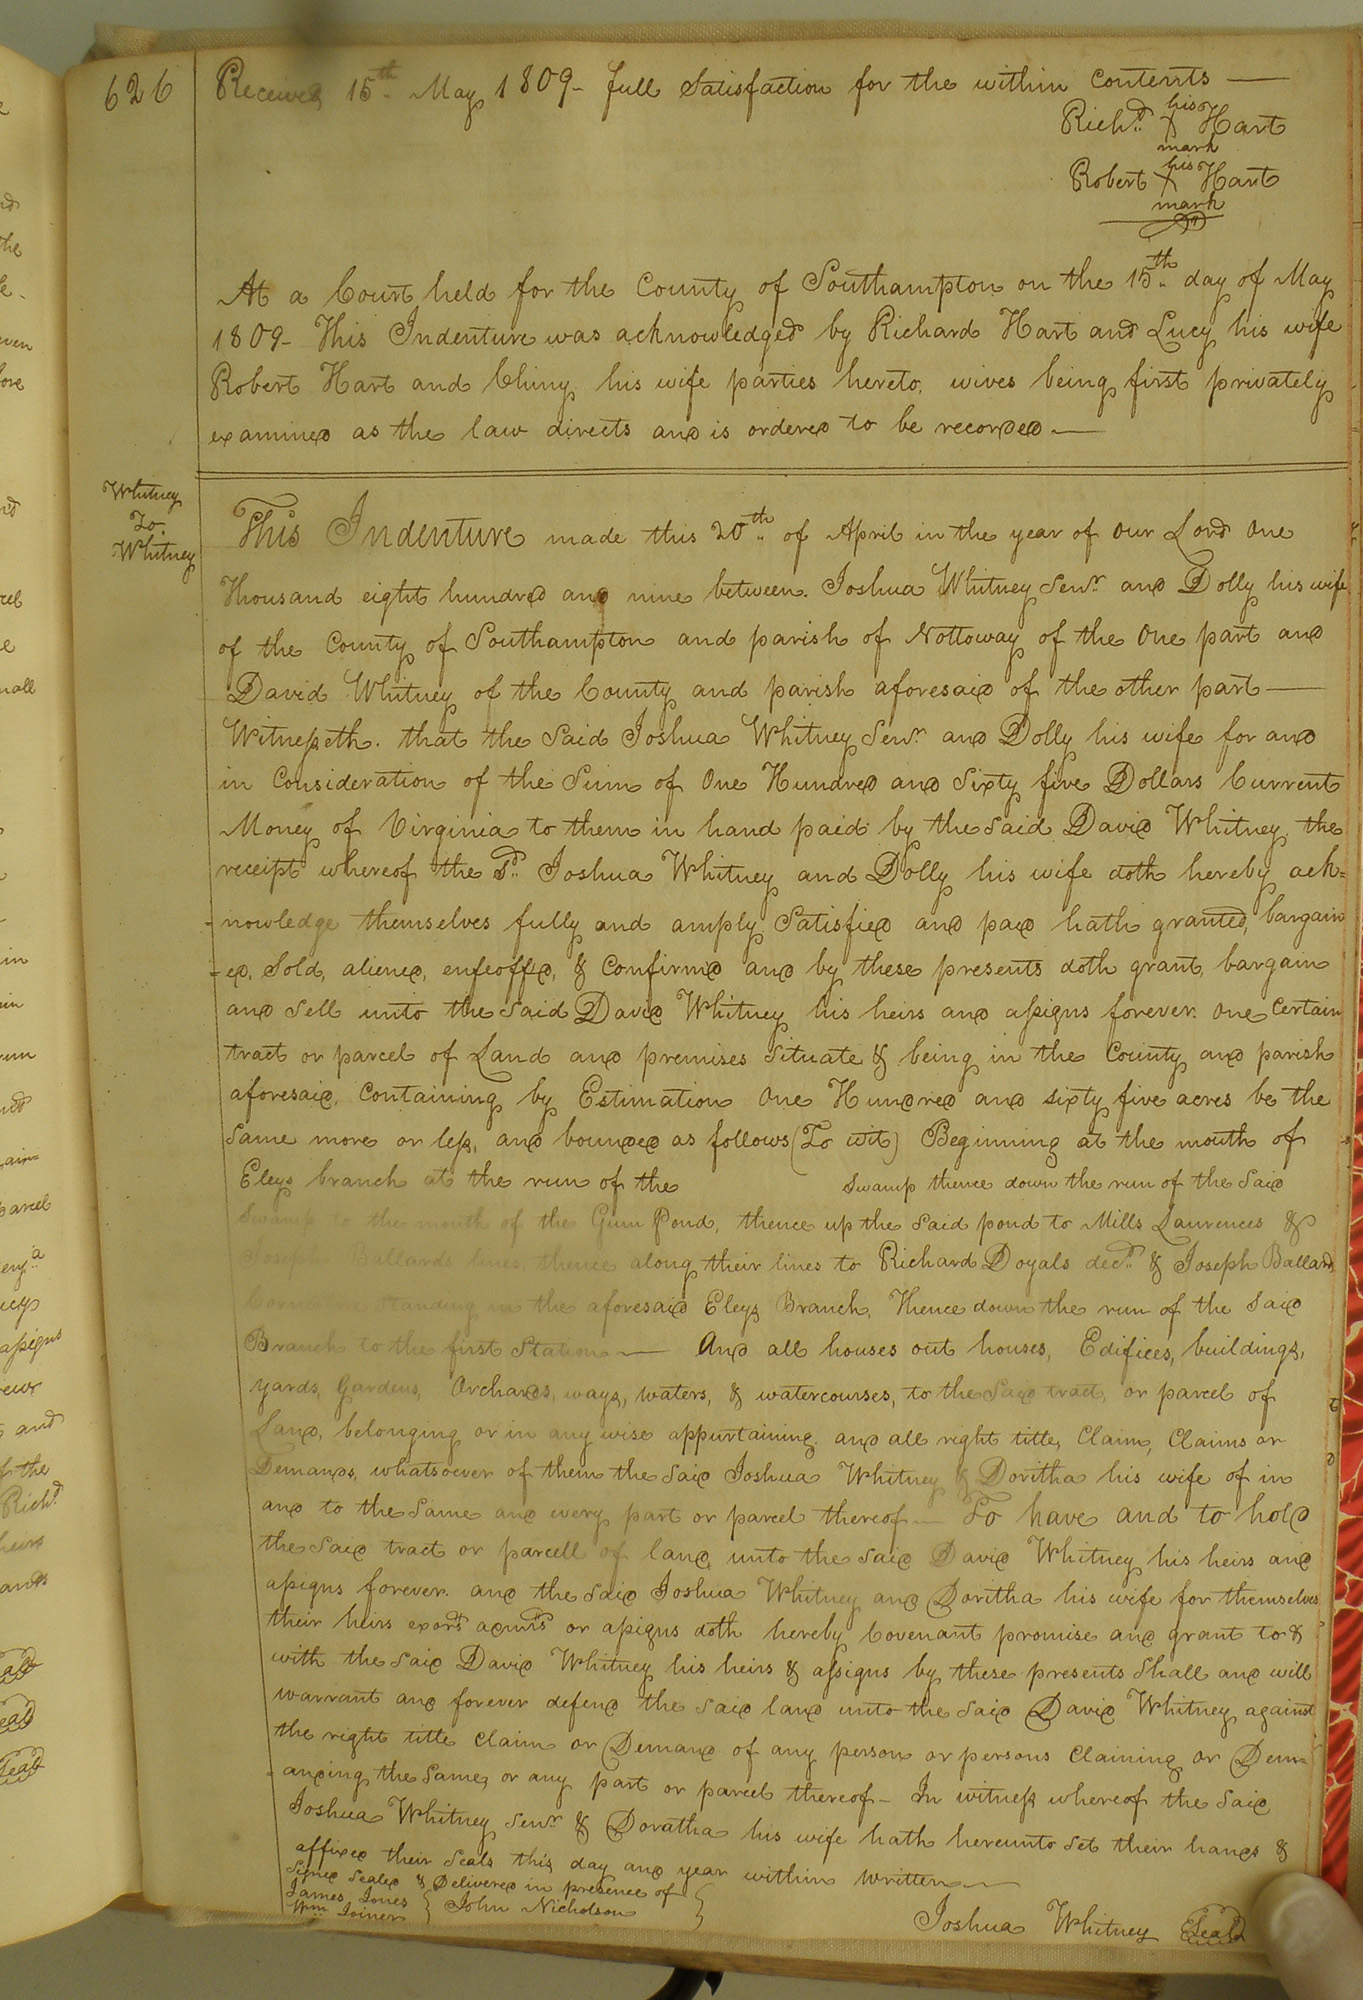 626
Received 15th May 1809 - full Satisfaction for the within Contents —
Richd. his X mark Hart
Robert his X mark Hart
At a Court held for the County of Southampton on the 15th. day of May
1809 - This Indenture was acknowledged by Richard Hart and Lucy his wife
Robert Hart and Chiny his wife parties hereto, wives being first privately
examined as the law directs and is ordered to be recorded —
Whitney
To
Whitney
This Indenture made this 20th. of April in the year of our Lord One
Thousand eight hundred and nine between. Joshua Whitney Senr. and Dolly his wife
of the County of Southampton and parish of Nottoway of the One part and
David Whitney of the County and parish aforesaid of the other part —
Witnesseth. that the Said Joshua Whitney Senr. and Dolly his wife for and
in Consideration of the Sum of One Hundred and Sixty five Dollars Current
Money of Virginia to them in hand paid by the Said David Whitney the
receipt whereof the Sd. Joshua Whitney and Dolly his wife doth hereby ack=
-nowledge themselves fully and amply Satisfied and paid hath granted, bargain
-ed, Sold, aliened, enfeoffed, & Confirmed and by these presents doth grant, bargain
and Sell unto the Said David Whitney his heirs and assigns forever. One Certain
tract or parcel of Land and premises Situate & being in the County and parish
aforesaid, Containing by Estimation One Hundred and sixty five acres be the
Same more or less, and bounded as follows (To wit) Beginning at the mouth of
Eleys branch at the run of the Swamp thence down the run of the Said
Swamp to the mouth of the Gum Pond, thence up the Said pond to Mills Laurences &
Joseph Ballards lines, thence along their lines to Richard Doyals decd. & Joseph Ballards
Standing in the aforesaid Eleys Branch, Thence down the run of the Said
Branch to the first Station — And all houses out houses, Edifices, buildings,
yards, Gardens, Orchards, ways, waters, & watercourses, to the Said tract, or parcel of
Land, belonging or in any wise appurtaining. and all right title, Claim, Claims or
Demands, whatsoever of them the Said Joshua Whitney & Doritha his wife of in
and to the Same and every part or parcel thereof — To have and to hold
the Said tract or parcell of land unto the Said David Whitney his heirs and
assigns forever. and the Said Joshua Whitney and Doritha his wife for themselves
their heirs exors admrs or assigns doth hereby Covenant promise and grant to &
with the Said David Whitney his heirs & assigns by these presents Shall and will
warrant and forever defend the Said land unto the Said David Whitney against
the right title Claim or Demand of any person or persons Claiming or Dem-
-anding the Same, or any part or parcel thereof - In witness whereof the Said
Joshua Whitney Senr. & Doratha his wife hath hereunto Set their hands &
affixed their Seals this day and year within written —
Signed Sealed & Delivered in presence of
James Jones } John Nicholson }
Wm. Joiner
Joshua Whitney Seal